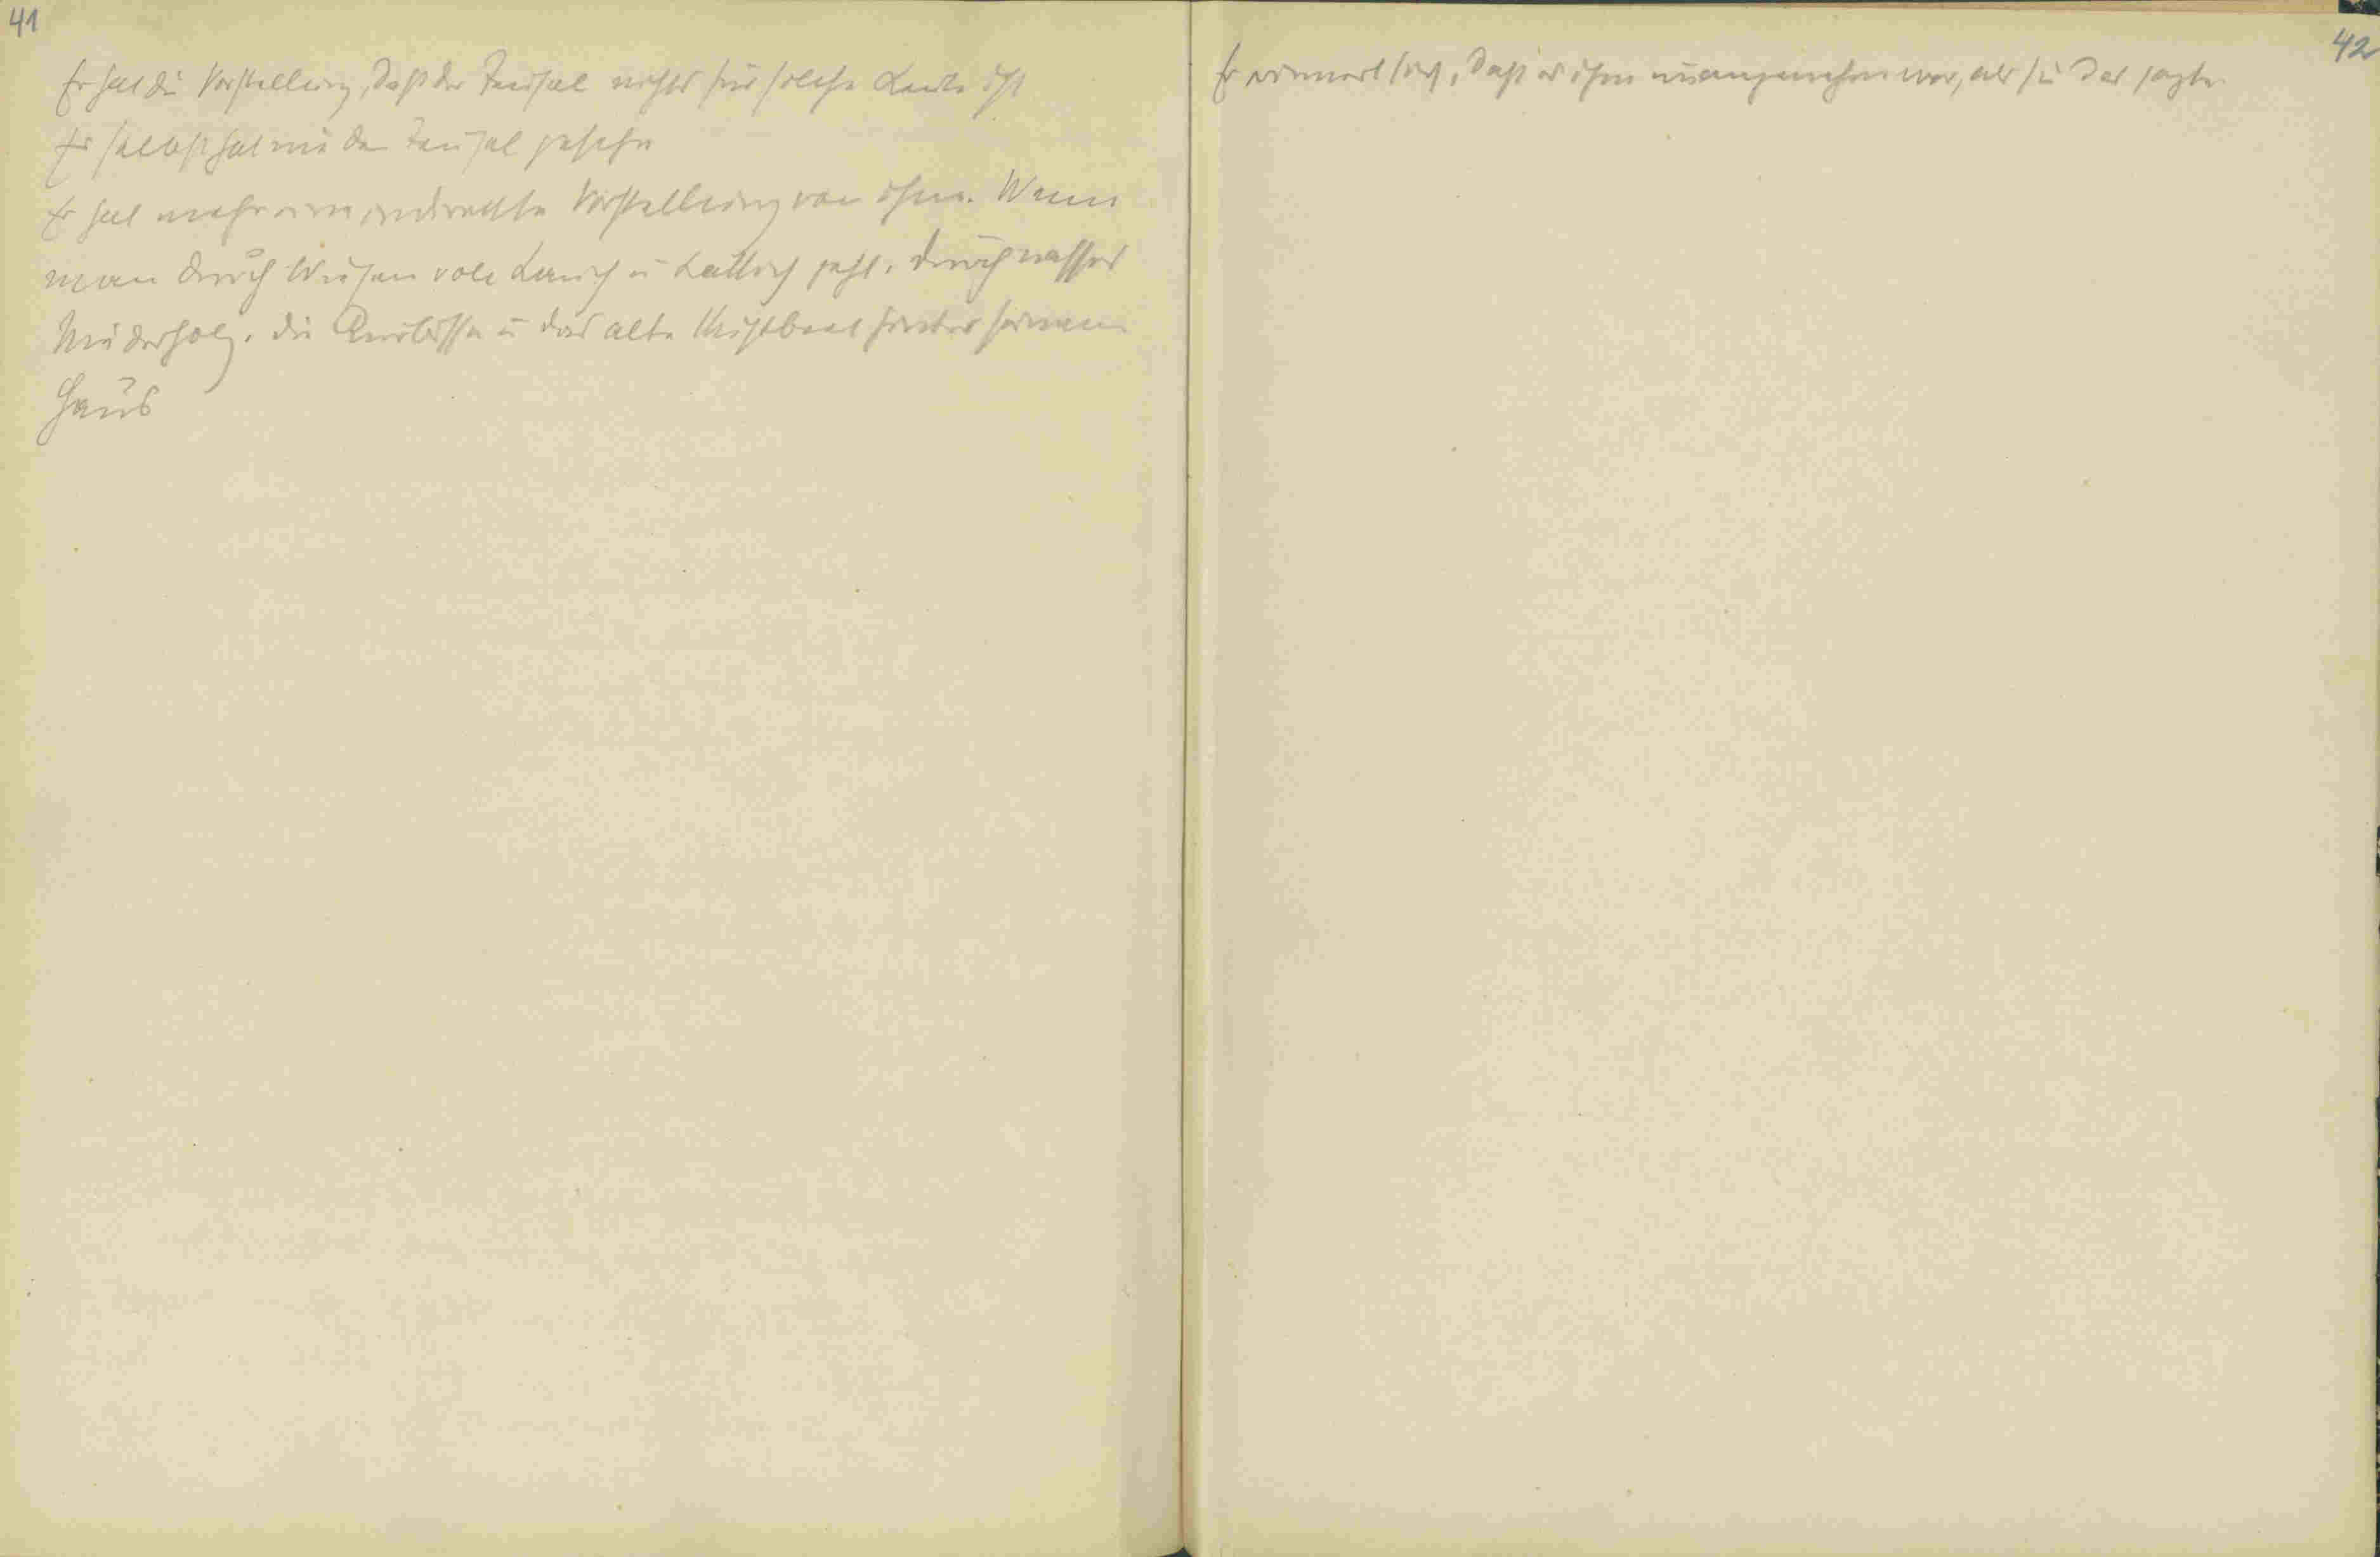 41
Er hat die Vorstellung, daß der Teufel nichts für solche Leute ist
Er selbst hat nie den Teufel gesehn
Er hat mehr eine indirekte Vorstellung von ihm. Wenn
man durch Wiesen voll Lauch u Lattich geht, durch nasses
Niederholz, die u das alte Mistbeet hinter seinem
Haus
42
Er erinnert sich, daß es ihm unangenehm war, als sie das sagte.